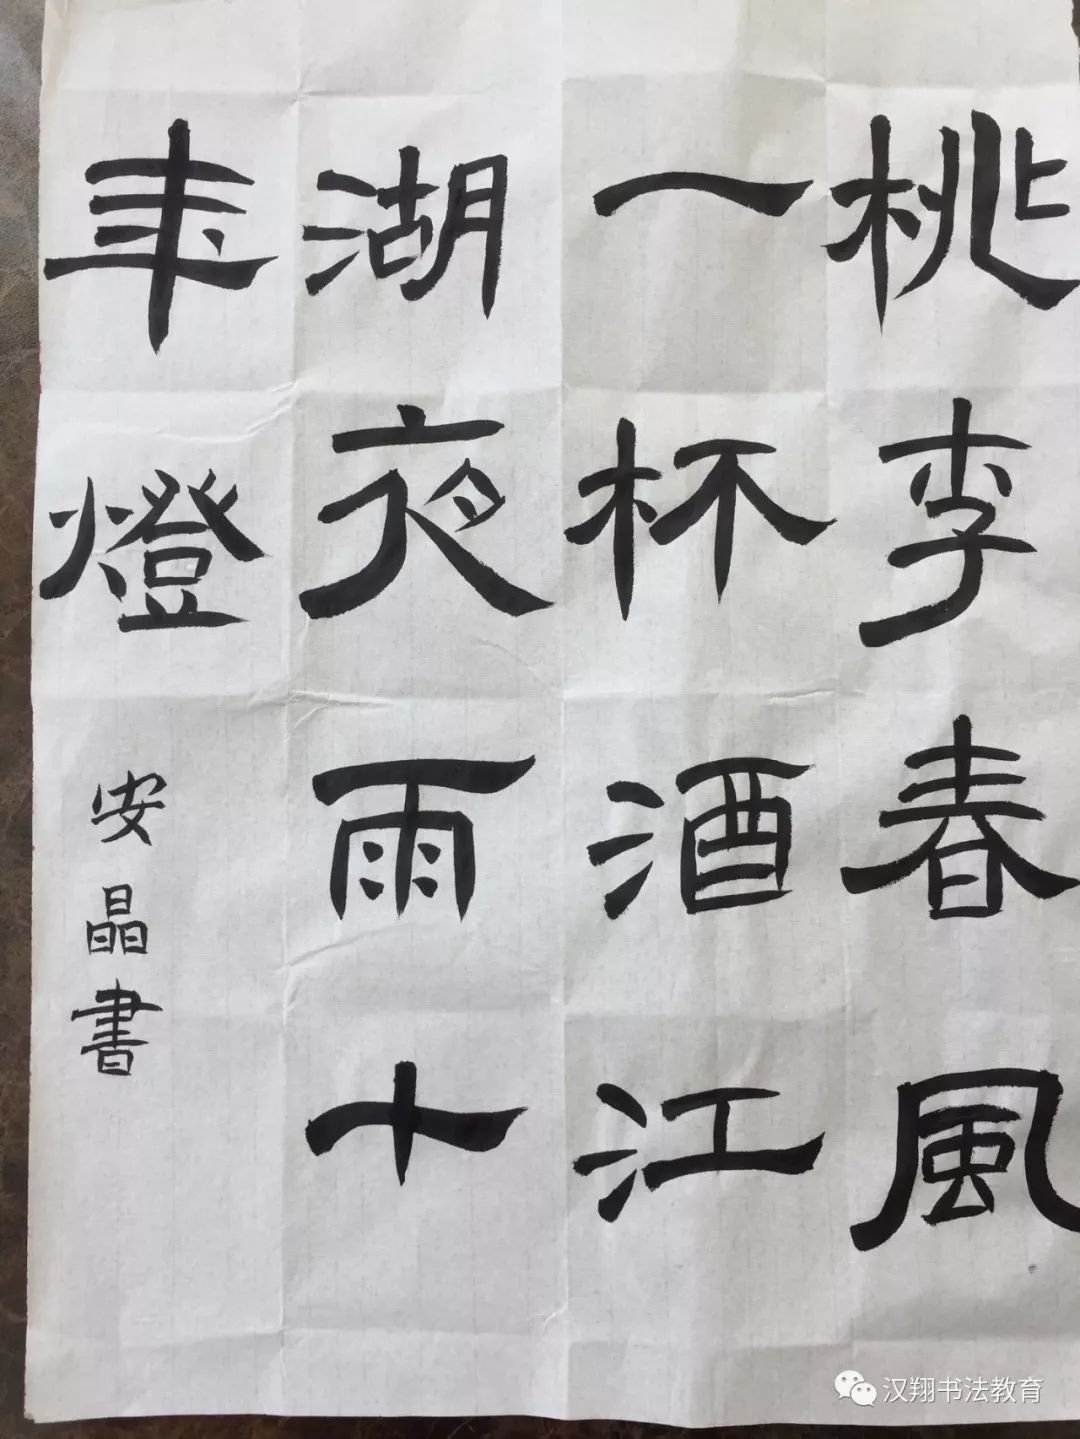 桃李春風
一杯酒江
湖夜雨十
年燈
安晶書
汉翔书法教育